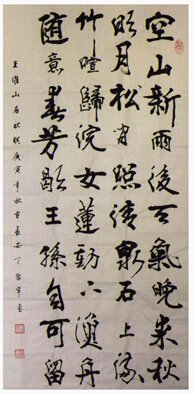 空山新雨後天氣晚来秋
明月松间照清泉石上流
竹喧歸浣女蓮動下漁舟
随意春芳歇王孫自可留
王維山居秋暝庚寅年秋古長安丁